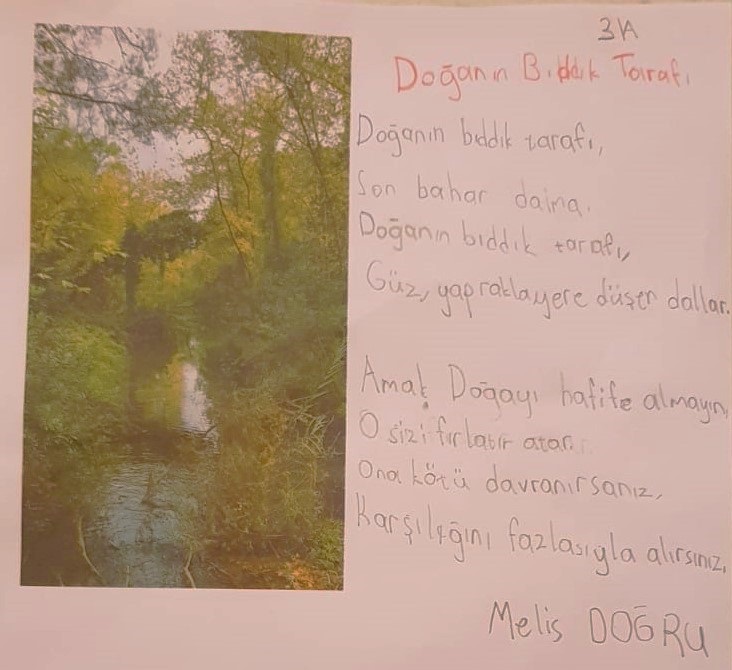 3/A
Doğanın Bıddık Tarafı
Doğanın bıddık tarafı,
Son bahar daima.
Doğanın bıddık tarafı,
Güz, yapraklayere düşer dallar.
Amak Doğayı hafife almayın,
O sizi fırlatır atar.
Ona kötü davranırsanız,
Karşılığını fazlasıyla alırsınız.
Melis DOĞRU